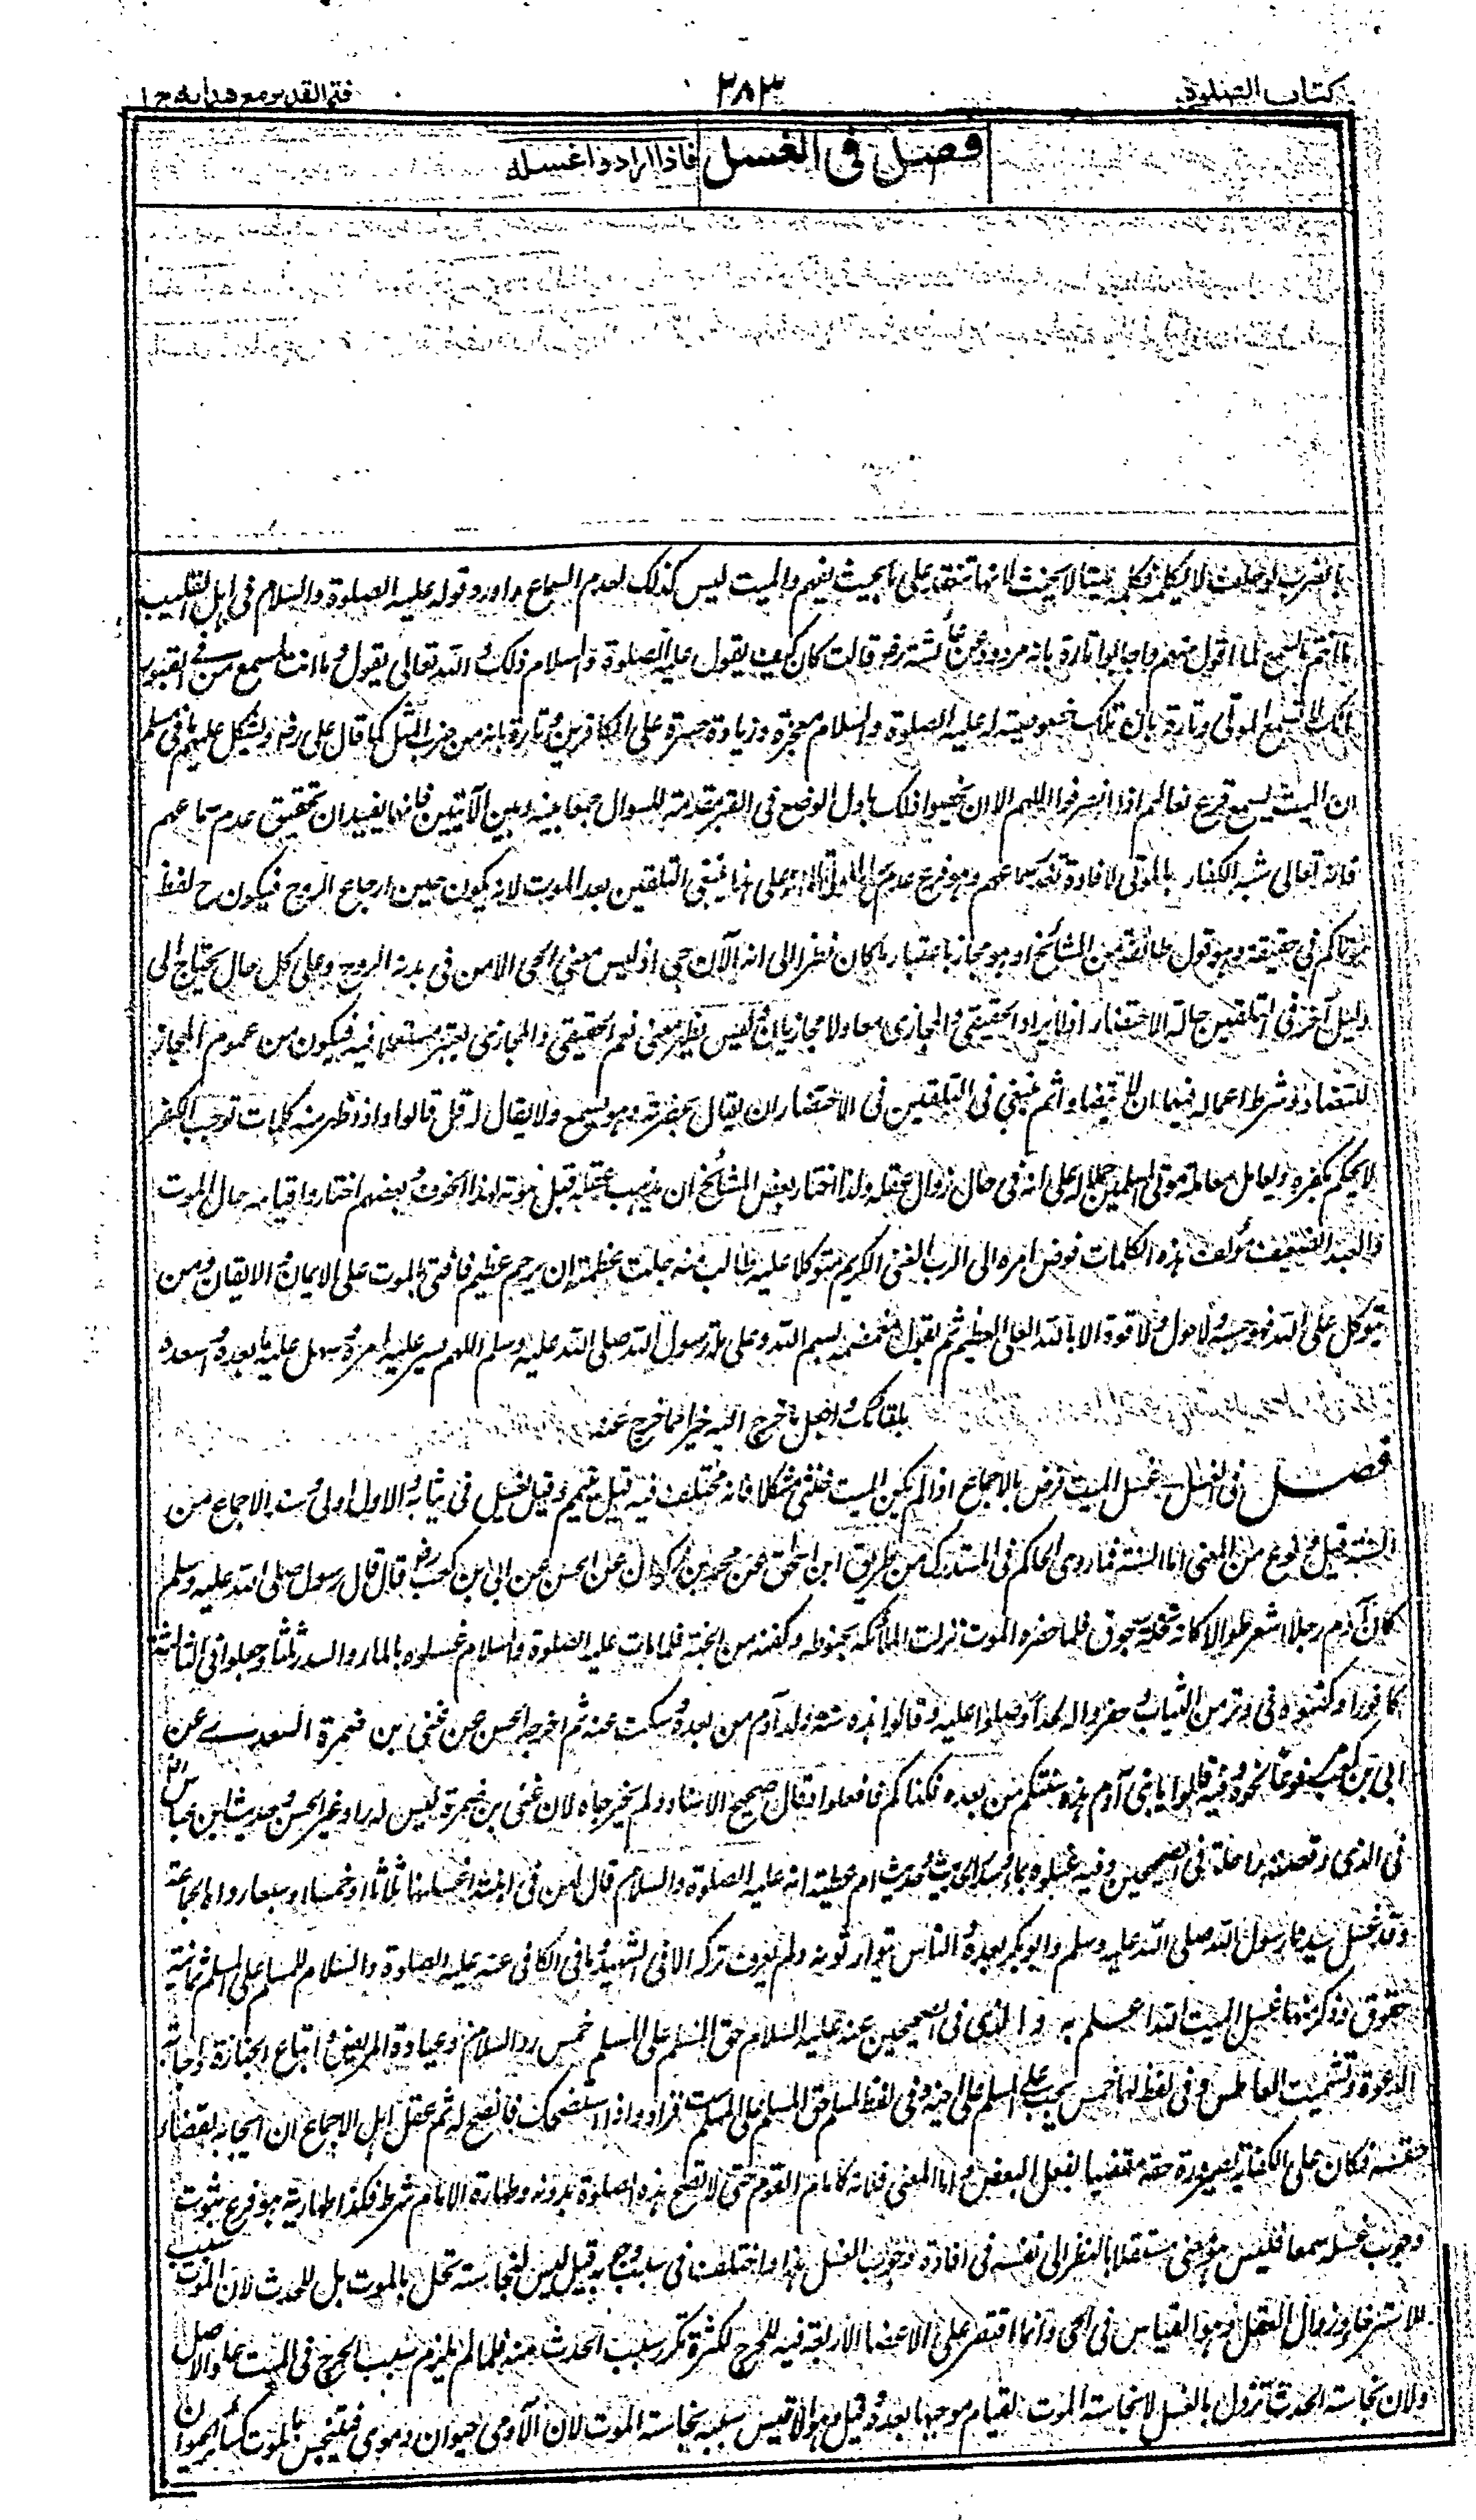 كتاب الصلوة
٢٨٣
فتح القدير مع هداية ج ١
فصل في الغسل فاذا ارادوا غسله
بالضرب لو حلف لا يكلمه فكلمه ميتا لا يحنث لانها تنعقد على ما بحيث يفهم والميت ليس كذلك لعدم السماع واورد قوله عليه الصلوة والسلام في اهل القليب
ما انتم باسمع لما اقول منهم واجابوا تارة بانه مردود من عائشة رض قالت كيف يقول عليه الصلوة والسلام ذلك والله تعالى يقول وما انت بمسمع من في القبور
انك لا تسمع الموتى وتارة بان تلك خصوصية له عليه الصلوة والسلام معجزة وزيادة حسرة على الكافرين وتارة بانه من ضرب المثل كما قال علي رض ويشكل عليهم ما في مسلم
ان الميت ليسمع قرع نعالهم اذا انصرفوا اللهم الا ان يخصوا ذلك باول الوضع في القبر مقدمة للسوال جمعا بينه وبين الآيتين فانهما يفيدان تحقيق عدم سماعهم
فانه تعالى شبه الكفار بالموتى لافادة تعذر سماعهم وهو فرع عدم سماع الموتى الا انه على هذا ينبغي التلقين بعد الموت لانه يكون حين ارجاع الروح فيكون ح لفظ
موتاكم في حقيقته وهو قول طائفة من المشائخ او هو مجاز باعتبار ما كان نظرا الى انه الآن حي اذ ليس معنى الحي الا من في بدنه الروح وعلى كل حال يحتاج الى
دليل آخر في التلقين حالة الاحتضار اذ لا يراد الحقيقي والمجازي معا ولا مجازيان وليس يظهر معنى يعم الحقيقي والمجازي يعتبر مستعملا فيه فيكون من عموم المجاز
للتضاد وشرط اعماله فيهما ان لا يتضادا ثم ينبغي في التلقين في الاحتضار ان يقال بحضرته وهو يسمع ولا يقال له قل قالوا واذا ظهر منه كلمات توجب الكفر
لا يحكم بكفره ويعامل معاملة موتى المسلمين حملا له على انه في حال زوال عقله ولذا اختار بعض المشائخ ان يذهب عقله قبل موته لهذا الخوف وبعضهم اختاروا قيامه حال الموت
والعبد الضعيف مؤلف هذه الكلمات فوض امره الى الرب الغني الكريم متوكلا عليه طالبا منه جلت عظمته ان يرحم عظيم فاقتي بالموت على الايمان والايقان ومن
يتوكل على الله فهو حسبه ولا حول ولا قوة الا بالله العلي العظيم ثم يقول مغمضه بسم الله وعلى ملة رسول الله صلى الله عليه وسلم اللهم يسر عليه امره وسهل عليه ما بعده واسعده
بلقائك واجعل ما خرج اليه خيرا مما خرج عنه
فصل في الغسل غسل الميت فرض بالاجماع اذا لم يكن الميت خنثى مشكلا فانه مختلف فيه قيل ييمم وقيل يغسل في ثيابه والاول اولى وسند الاجماع من
السنة قيل ونوع من المعنى اما السنة فما روى الحاكم في المستدرك من طريق ابن اسحق عن محمد بن ذكوان عن الحسن عن ابي بن كعب رض قال قال رسول صلى الله عليه وسلم
كان آدم رجلا اشعر طوالا كانه نخلة سحوق فلما حضره الموت نزلت الملائكة بحنوطه وكفنه من الجنة فلما مات عليه الصلوة والسلام غسلوه بالماء والسدر ثلثا وجعلوا في الثالثة
كافورا وكفنوه في وتر من الثياب وحفروا له لحدا وصلوا عليه وقالوا هذه سنة ولد آدم من بعده وسكت عنه ثم اخرجه الحسن عن عتي بن ضمرة السعدي عن
ابي بن كعب مرفوعا نحوه وفيه قالوا يا بني آدم هذه سنتكم من بعده فكذاكم فافعلوا وقال صحيح الاسناد ولم يخرجاه لان عتي بن ضمرة ليس له راو غير الحسن وحديث ابن عباس رض
في الذي وقصته راحلته في الصحيحين وفيه غسلوه بماء وسدر الحديث وحديث ام عطية انه عليه الصلوة والسلام قال لهن في ابنته اغسلنها ثلاثا او خمسا او سبعا رواه الجماعة
وقد غسل سيدنا رسول الله صلى الله عليه وسلم وابو بكر بعده والناس يتوارثونه ولم يعرف تركه الا في الشهيد وما في الكافي عنه عليه الصلوة والسلام للمسلم على المسلم ثمانية
حقوق وذكر منها غسل الميت الله اعلم به والذي في الصحيحين عنه عليه السلام حق المسلم على المسلم خمس رد السلام وعيادة المريض واتباع الجنازة واجابة
الدعوة وتشميت العاطس وفي لفظ لهما خمس يجب على المسلم على اخيه وفي لفظ لمسلم حق المسلم على المسلم ست فزاد واذا استنصحك فانصح له ثم عقل اهل الاجماع ان ايجابه لقضاء
حقه فكان على الكفاية لصيرورة حقه مقضيا بفعل البعض واما المعنى فلانه كامام القوم حتى لا تصح هذه الصلوة بدونه وطهارة الامام شرط فكذا طهارته فهو فرع ثبوت
وجوب غسله سمعا فليس هو معنى مستقلا بالنظر الى نفسه في افادة وجوب الغسل هذا واختلف في سبب وجوبه قيل ليس لنجاسة تحل بالموت بل للحدث لان الموت سبب
للاسترخاء وزوال العقل وهو القياس في الحي وانما اقتصر على الاعضاء الاربعة فيه للحرج لكثرة تكرر سبب الحدث منه فلما لم يلزم سبب الحرج في الميت عاد الاصل
ولان نجاسة الحدث تزول بالغسل لا نجاسة الموت لقيام موجبها بعده وقيل وهو الاقيس سببه نجاسة الموت لان الآدمي حيوان دموي فيتنجس بالموت كسائر الحيوان